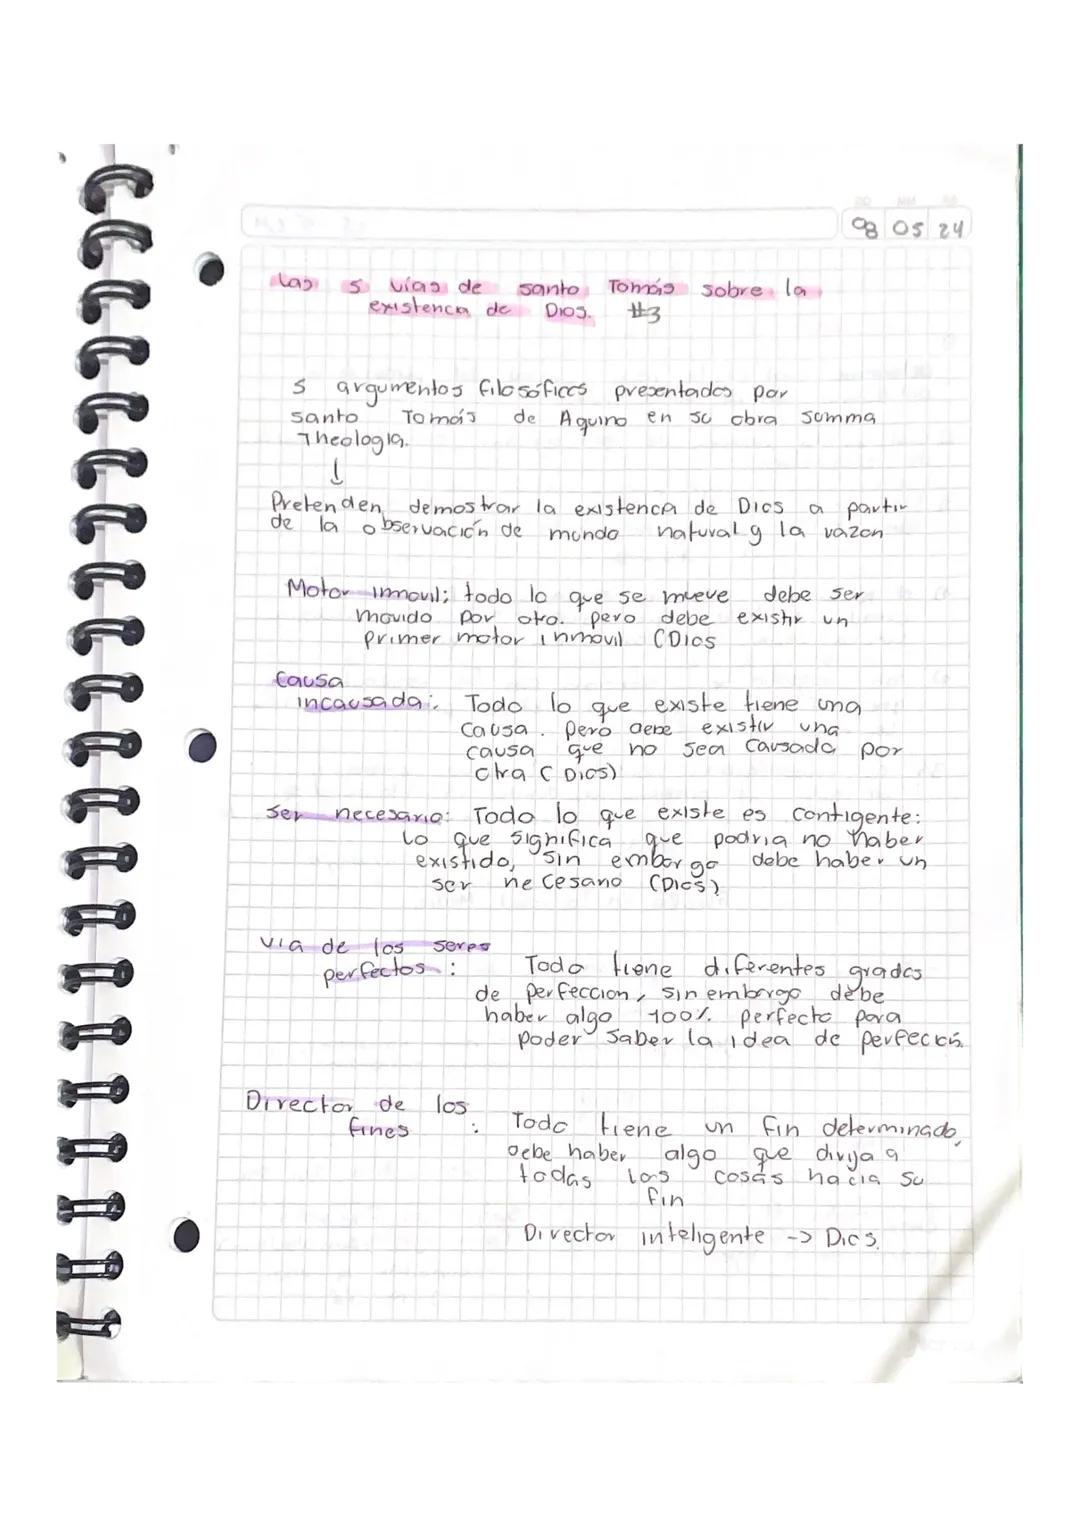 08 05 24
Las 5 vías de santo Tomás sobre la
existenca de Dios. #3
5 argumentos filosóficos presentados por
santo Tomás de Aquino en su obra Summa
Theologia.
↓
Pretenden demostrar la existenca de Dios a partir
de la observación de mundo natural y la razon
Motor inmovil; todo lo que se mueve debe ser
movido por otro. pero debe existir un
primer motor inmovil (Dios
Causa
incausada: Todo lo que existe tiene una
causa. Pero debe existir una
causa que no sea causada por
otra (Dios)
Ser necesario: Todo lo que existe es contigente:
lo que significa que podria no haber
existido, sin embargo debe haber un
ser necesario (Dios)
via de los seres
perfectos: Todo tiene diferentes grados
de perfeccion, sin embargo debe
haber algo 100% perfecto para
poder saber la idea de perfeción.
Director de los
fines : Todo tiene un fin determinado,
debe haber algo que dirija a
todas las cosas hacia su
fin
Director inteligente -> Dios.